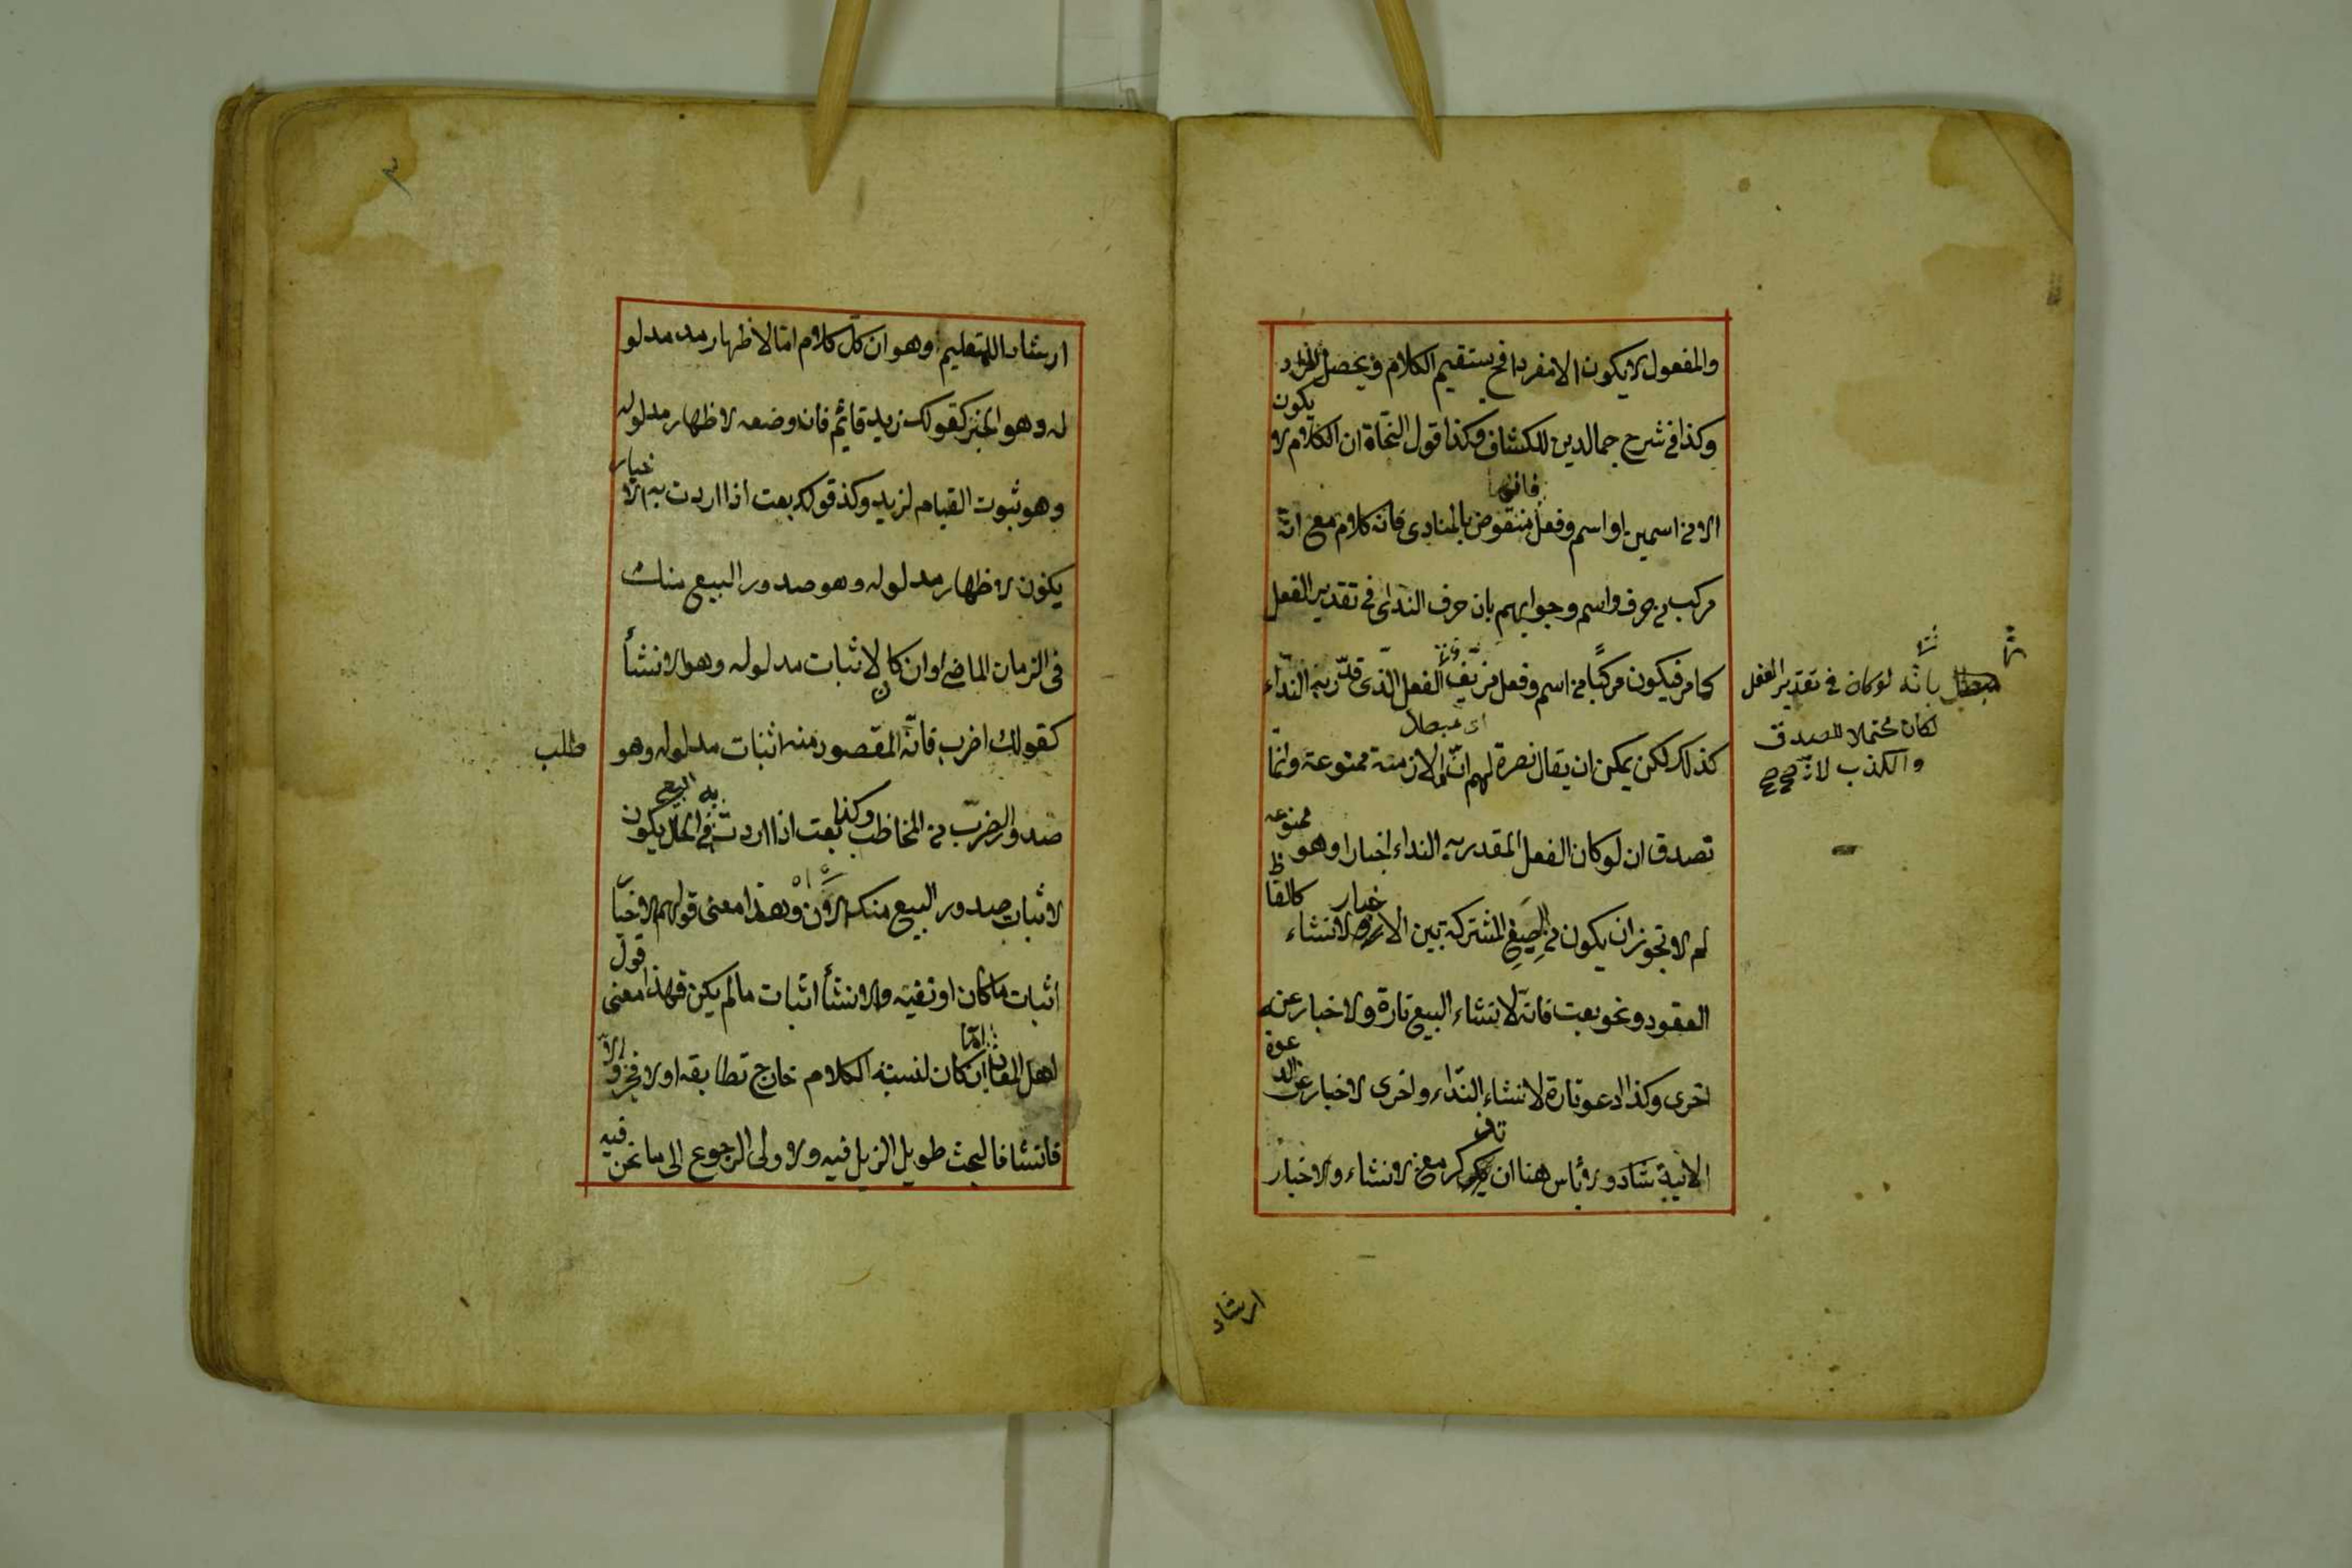 والمفعول لا يكون الا مفردا فح يستقيم الكلام ويحصل المراد
وكذا في شرح جمالدين للكشاف وكذا قول النحاة ان الكلام لا يكون
الا من اسمين او اسم وفعل منقوض بالمنادى فانه كلام مع انه
مركب من حرف واسم وجوابهم بان حرف النداى في تقدير الفعل
كما مر فيكون مركبًا من اسم وفعل مزيف الفعل الذى قدر به النداء
كذلك لكن يمكن ان يقال نصرة لهم ان الملازمة ممنوعة وانما
اى مبطل
تصدق ان لو كان الفعل المقدر به النداء اخبارا وهو ممنوعه
لم لا تجوز ان يكون من الصيغ المشتركة بين الاخبار والانشاء كالفاظ
العقود ونحو بعت فانه لانشاء البيع تارة ولاخبار عنه
اخرى وكذا ادعو تارة لانشاء النداء واخرى لاخبار عن الدعوة
الاتية شاد ولا بأس هنا ان تذكر معنى الانشاء والاخبار
بانه لو كان في تقدير الفعل
لكان محتملا للصدق
والكذب لانه
ارشاد
ارشادا للمتعليم وهو ان كل كلام اما لاظهار مد مدلو
له وهو الخبر كقولك زيد قائم فانه وضعه لاظهار مدلوله
وهو ثبوت القيام لزيد وكذ قولك بعت اذا اردت به الاخبار
يكون لاظهار مدلوله وهو صدور البيع منك
فى الزمان الماضى او ان كان لاثبات مدلوله وهو الانشأ
كقولك اضرب فانه المقصور منه اثبات مدلوله وهو طلب
صدور الضرب من المخاطب وكذا بعت اذا اردت به البيع في الحال يكون
لاثبات صدور البيع منك الان وهذا معنى قولهم الاخبا
اثبات ما كان او نفيه والانشأ اثبات ما لم يكن فهذا معنى قول
اهل المعان ان كان لنسبة الكلام خارج تطابقه اولا فخبر والا
فانشا فالبحث طويل الزيل فيه والاولى الرجوع الى ما نحن فيه